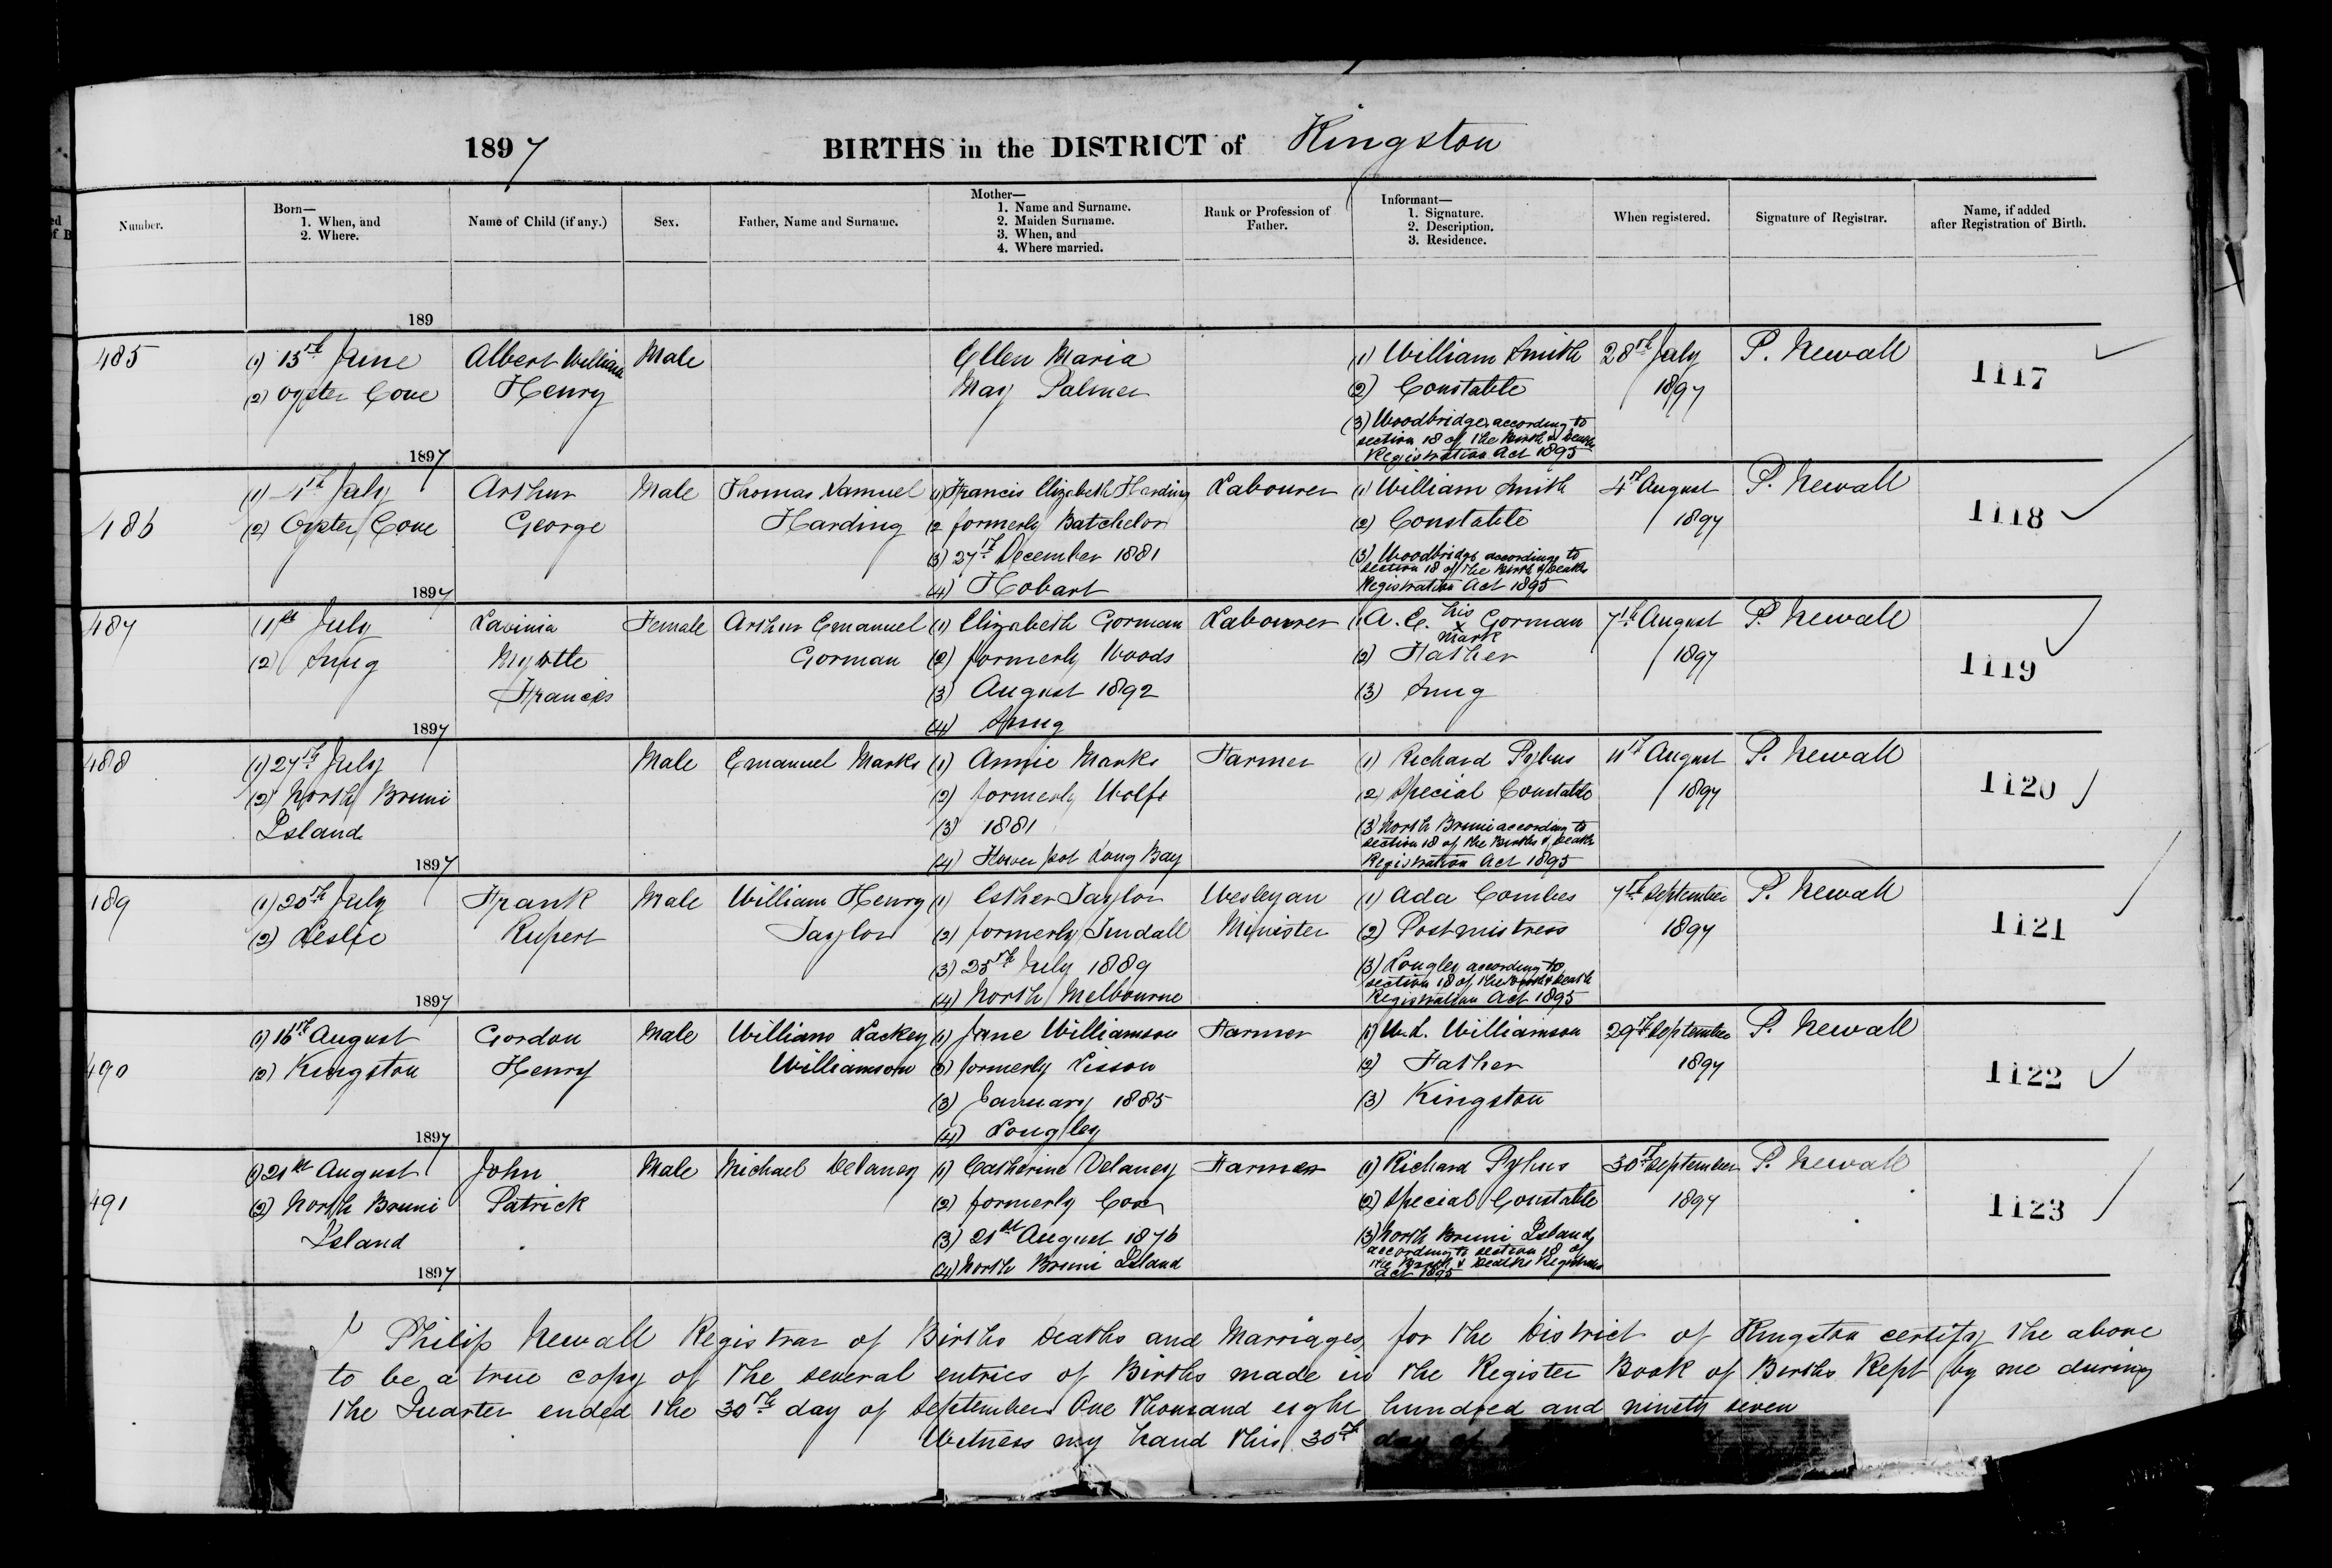 1897 BIRTHS in the DISTRICT of Kingston
Number.
Born—
1. When, and
2. Where.
Name of Child (if any.)
Sex.
Father, Name and Surname.
Mother—
1. Name and Surname.
2. Maiden Surname.
3. When, and
4. Where married.
Rank or Profession of
Father.
Informant—
1. Signature.
2. Description.
3. Residence.
When registered.
Signature of Registrar.
Name, if added
after Registration of Birth.
189
485
(1) 13th June
(2) Oyster Cove
1897
Albert William
Henry
Male
Ellen Maria
May Palmer
(1) William Smith
(2) Constable
(3) Woodbridge, according to
section 18 of the Birth & Death
Registration Act 1895
28th July
1897
P. Newall
1117
486
(1) 4th July
(2) Oyster Cove
1897
Arthur
George
Male
Thomas Samuel
Harding
(1) Francis Elizabeth Harding
2 formerly Batchelor
(3) 27th December 1881
(4) Hobart
Labourer
(1) William Smith
(2) Constable
(3) Woodbridge according to
section 18 of the Birth & Death
Registration Act 1895
4th August
1897
P. Newall
1118
487
(1 1st July
(2) Snug
1897
Lavinia
Myrtle
Francis
Female
Arthur Emanuel
Gorman
(1) Elizabeth Gorman
(2) formerly Woods
(3) August 1892
(4) Snug
Labourer
(1 A. E. his Gorman
x
mark
(2) Father
(3) Snug
7th August
1897
P. Newall
1119
488
(1) 27th July
(2) North Bruni
Island
1897
Male
Emanuel Marks
(1) Annie Marks
(2) formerly Wolfe
(3) 1881
(4) Flower pot Long Bay
Farmer
(1) Richard Pybus
(2) Special Constable
(3) North Bruni according to
section 18 of the Births & Death
Registration Act 1895
11th August
1897
P. Newall
1120
189
(1) 20th July
(2) Leslie
1897
Frank
Rupert
Male
William Henry
Taylor
(1) Esther Taylor
(2) formerly Tindall
(3) 25th July 1889
(4) North Melbourne
Wesleyan
Minister
(1) Ada Combes
(2) Postmistress
(3) Longley according to
section 18 of the Birth & Death
Registration Act 1895
7th September
1897
P. Newall
1121
490
(1) 16th August
(2) Kingston
1897
Gordon
Henry
Male
William Lackey
Williamson
(1) Jane Williamson
(2) formerly Lisson
(3) January 1885
(4) Longley
Farmer
(1) W. L. Williamson
(2) Father
(3) Kingston
29th September
1897
P. Newall
1122
491
(1) 21st August
(2) North Bruni
Island
1897
John
Patrick
Male
Michael Delaney
(1) Catherine Delaney
(2) formerly Cox
(3) 21st August 1876
(4) North Bruni Island
Farmer
(1) Richard Pybus
(2) Special Constable
(3) North Bruni Island
according to section 18 of
the Birth & Deaths
Act 1895
30th September
1897
P. Newall
1123
I Philip Newall Registrar of Births Deaths and Marriages for the District of Kingston certify the above
to be a true copy of the several entries of Births made in the Register Book of Births Kept by me during
the Quarter ended the 30th day of September One thousand eight hundred and ninety seven
Witness my hand this 30th day of